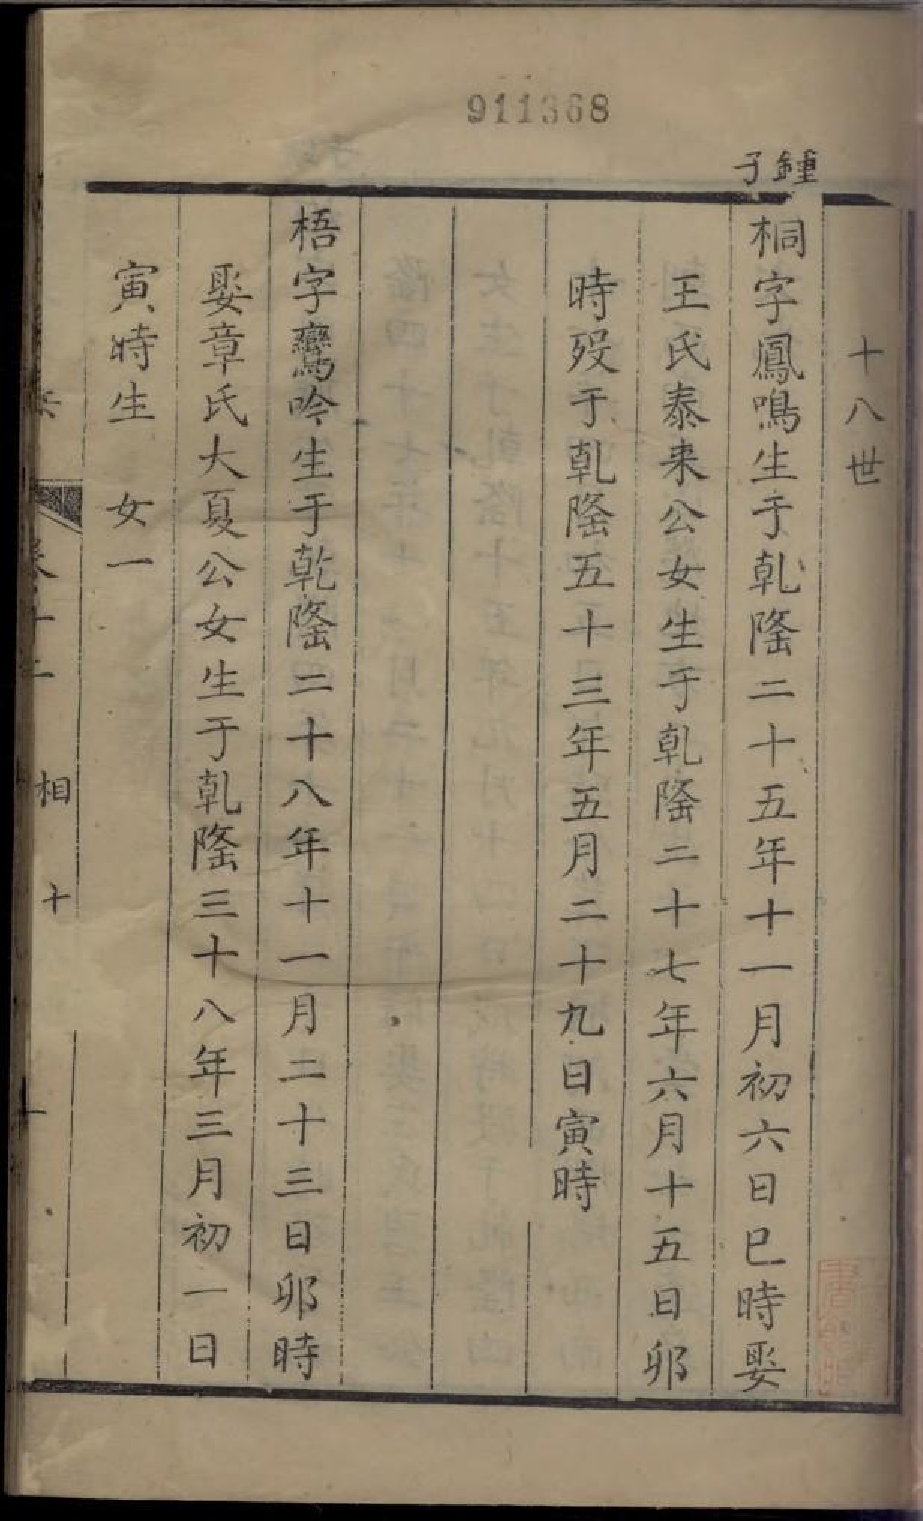 911368
鍾子
十八世
桐字鳳鳴生于乹隆二十五年十一月初六日巳時娶
王氏泰来公女生于乹隆二十七年六月十五日卯
時殁于乹隆五十三年五月二十九日寅時
梧字鸞吟生于乾隆二十八年十一月二十三日卯時
娶章氏大夏公女生于乹隆三十八年三月初一日
寅時生 女一
相 十